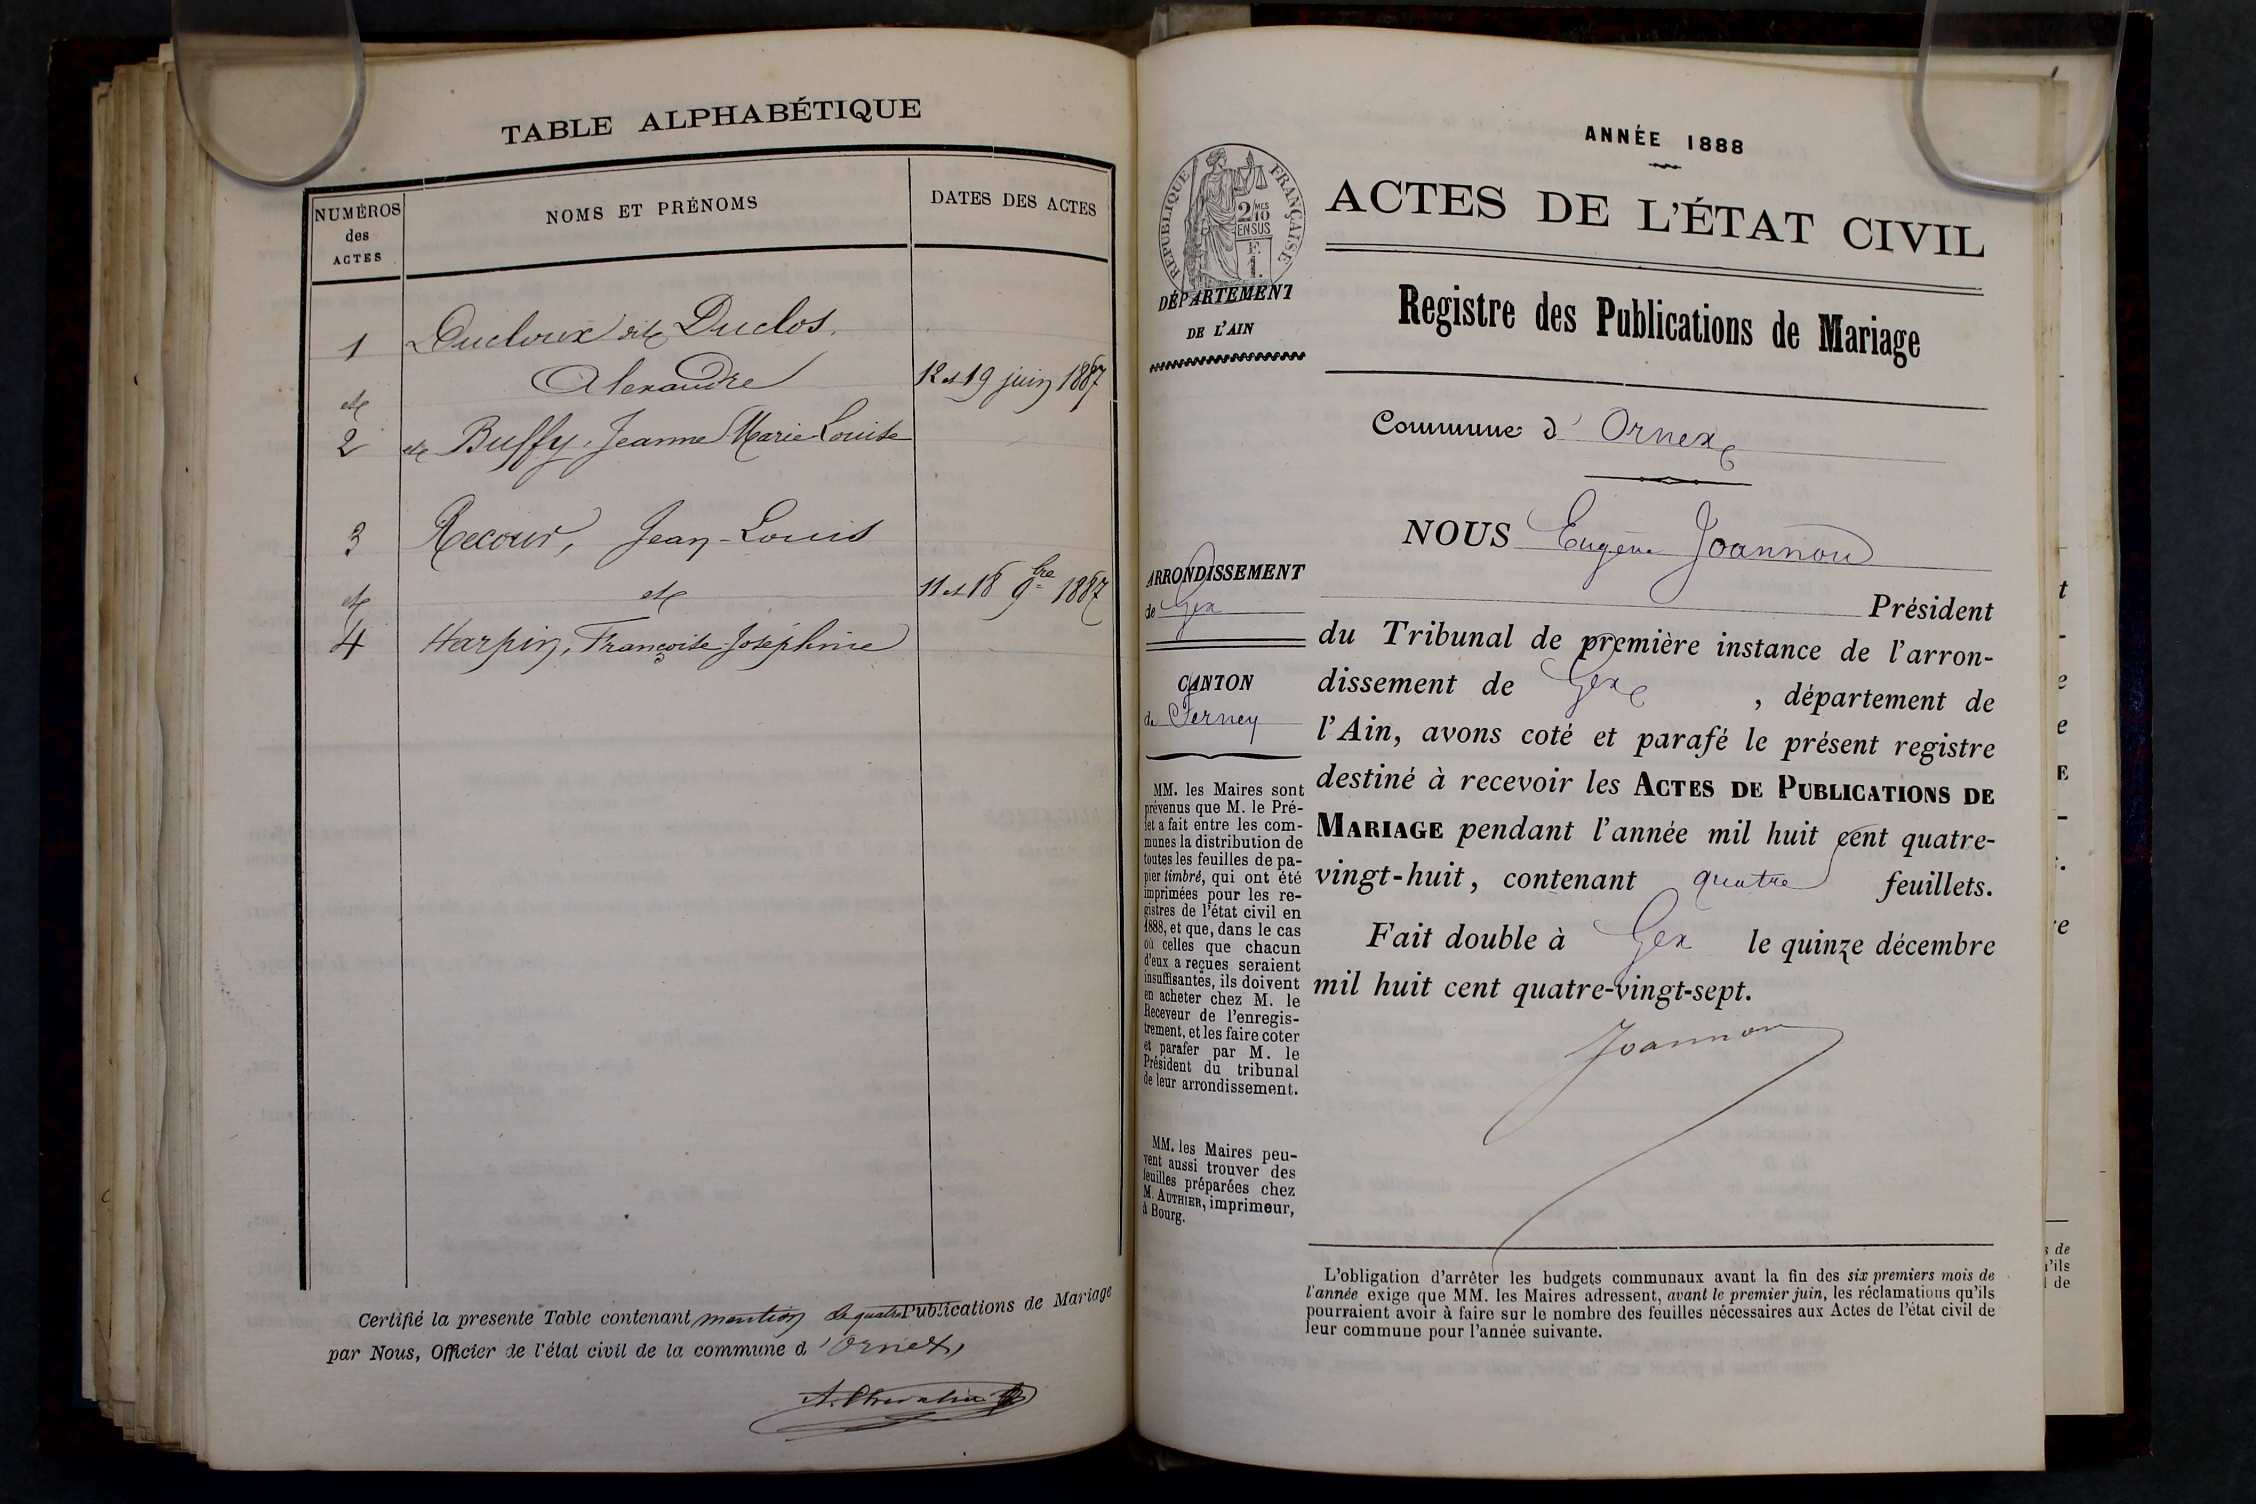 TABLE ALPHABÉTIQUE
NUMÉROS des ACTES
NOMS ET PRÉNOMS
DATES DES ACTES
1 Ducloux dit Duclos,
Alexandre
et
12 et 19 juin 1887
2 et Buffy, Jeanne Marie Louise
3 Recour, Jean-Louis
et et
11 et 18 9bre 1887
4 Harpin, Françoise Joséphine
Certifié la presente Table contenant mention de quatre Publications de Mariage
par Nous, Officier de l'état civil de la commune d'Ornex,
ANNÉE 1888
RÉPUBLIQUE FRANÇAISE
2 MES
10
EN SUS
F.
1.
DÉPARTEMENT
DE L'AIN
ACTES DE L'ÉTAT CIVIL
Registre des Publications de Mariage
Commune d'Ornex
ARRONDISSEMENT
de Gex
CANTON
de Ferney
MM. les Maires sont
prévenus que M. le Pré-
fet a fait entre les com-
munes la distribution de
toutes les feuilles de pa-
pier timbré, qui ont été
imprimées pour les re-
gistres de l'état civil en
1888, et que, dans le cas
où celles que chacun
d'eux a reçues seraient
insuffisantes, ils doivent
en acheter chez M. le
Receveur de l'enregis-
trement, et les faire coter
et parafer par M. le
Président du tribunal
de leur arrondissement.
MM. les Maires peu-
vent aussi trouver des
feuilles préparées chez
M. AUTHIER, imprimeur,
à Bourg.
NOUS Eugène Joannon
Président
du Tribunal de première instance de l'arron-
dissement de Gex, département de
l'Ain, avons coté et parafé le présent registre
destiné à recevoir les ACTES DE PUBLICATIONS DE
MARIAGE pendant l'année mil huit cent quatre-
vingt-huit, contenant quatre feuillets.
Fait double à Gex le quinze décembre
mil huit cent quatre-vingt-sept.
Joannon
L'obligation d'arrêter les budgets communaux avant la fin des six premiers mois de
l'année exige que MM. les Maires adressent, avant le premier juin, les réclamations qu'ils
pourraient avoir à faire sur le nombre des feuilles nécessaires aux Actes de l'état civil de
leur commune pour l'année suivante.